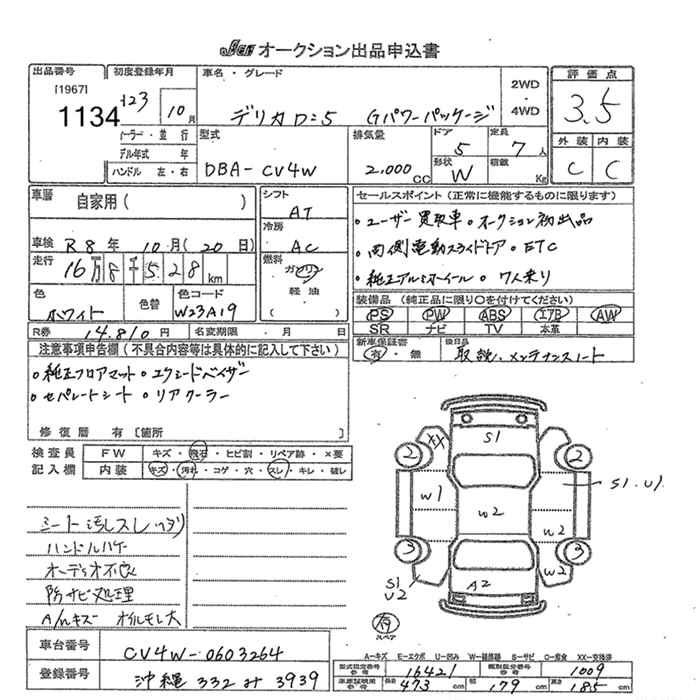 JU オークション出品申込書
出品番号
[1967]
1134
初度登録年月
H23 10月
カラー・並行
モデル年式 年
ハンドル 左・右
車名・グレード
デリカD:5 Gパワーパッケージ
2WD ・ 4WD
評価点
3.5
型式
DBA-CV4W
排気量
2,000 CC
ドア
5
形状
W
定員
7人
積載
Kg
外装 内装
C C
車歴
自家用( )
車検 R8年 10月(20日)
走行 16万8千528km
色
ホワイト
色替
色コード
W23A19
R券 14,810円
名変期限 ・ 月 日
シフト
AT
冷房
AC
燃料
ガソリン
軽油
( )
セールスポイント(正常に機能するものに限ります)
・ユーザー買取車・オークション初出品
・両側電動スライドドア・ETC
・純正アルミホイール・7人乗り
装備品(純正品に限り○を付けてください)
PS PW ABS エアB AW
SR ナビ TV 本革
新車保証書
有・無
後日品
取説、メンテナンスノート
注意事項申告欄(不具合内容等は具体的に記入して下さい)
・純正フロアマット・エクシードバイザー
・セパレートシート・リアクーラー
修復歴 有〔箇所
検査員 記入欄
FW キズ・飛石・ヒビ割・リペア跡・×要
内装 キズ・汚れ・コゲ・穴・スレ・キレ・破レ
シート汚レスレ ヘタリ
ハンドルハゲ
オーディオ不良
防サビ処理
A/Wキズ オイルモレ大
XX
S1
2
2
W1
W2
S1.U1
W2
W2
3
3
S1
U2
A2
有
スペア
車台番号 CV4W-0603264
登録番号 沖縄 332 み 3939
A-キズ E-エクボ U-凹み W-補修跡 S-サビ C-腐食 XX-交換済
型式指定番号 参考 16421
類別区分番号 参考 1009
車庫証明用 参考 長さ 473cm 幅 179cm 高さ 185cm